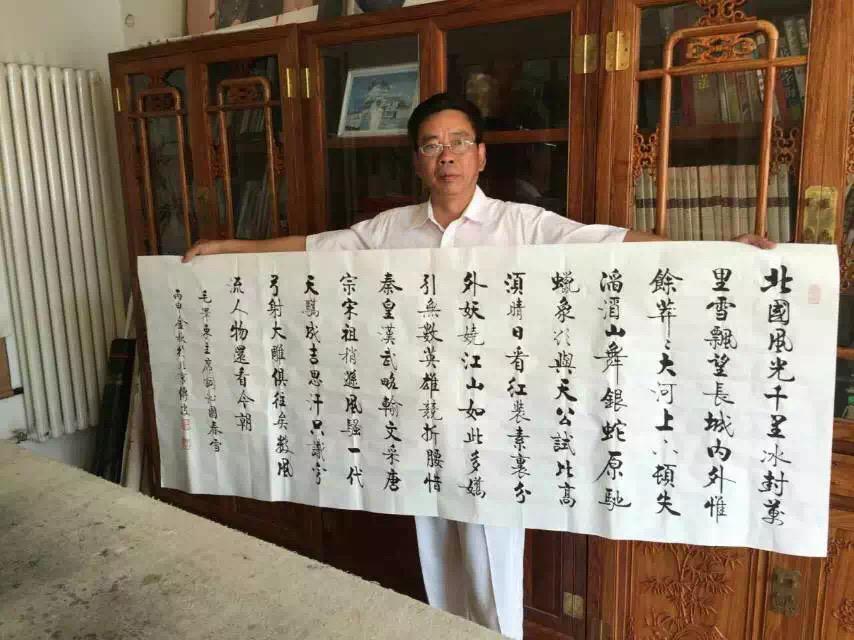 北國風光千里冰封萬
里雪飄望長城內外惟
餘莽〻大河上下頓失
滔滔山舞銀蛇原馳
蠟象欲與天公試比高
須晴日看紅裝素裹分
外妖嬈江山如此多嬌
引無數英雄競折腰惜
秦皇漢武略輸文采唐
宗宋祖稍遜風騷一代
天驕成吉思汗只識彎
弓射大雕俱往矣數風
流人物還看今朝
毛澤東主席詞沁園春雪
丙申金秋於北京